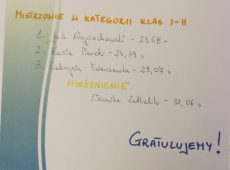 MISTRZOWIE W KATEGORII KLAS I-II
1. Wojciechowski - 23,58 s
2. Kasia Marek - 24,39 s
3. Gabrysia - 29,07 s
WYRÓŻNIENIE
- 31,06 s
GRATULUJEMY!